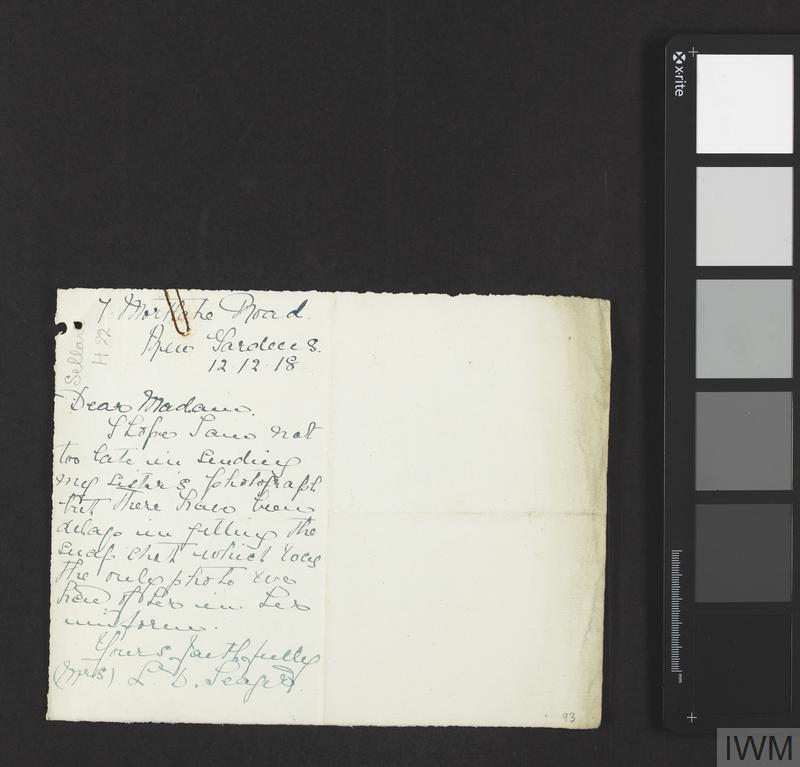 7. Mortlake Road
Kew Gardens.
12 12 18
Sellar
H 22
Dear Madam.
I hope I am not
too late in sending
my sister's photograph
but there have been
delays in getting the
snap shot which was
the only photo we
had of her in her
uniform.
Yours faithfully
(Mrs) L. D. Seager.
93
x·rite
mm
IWM